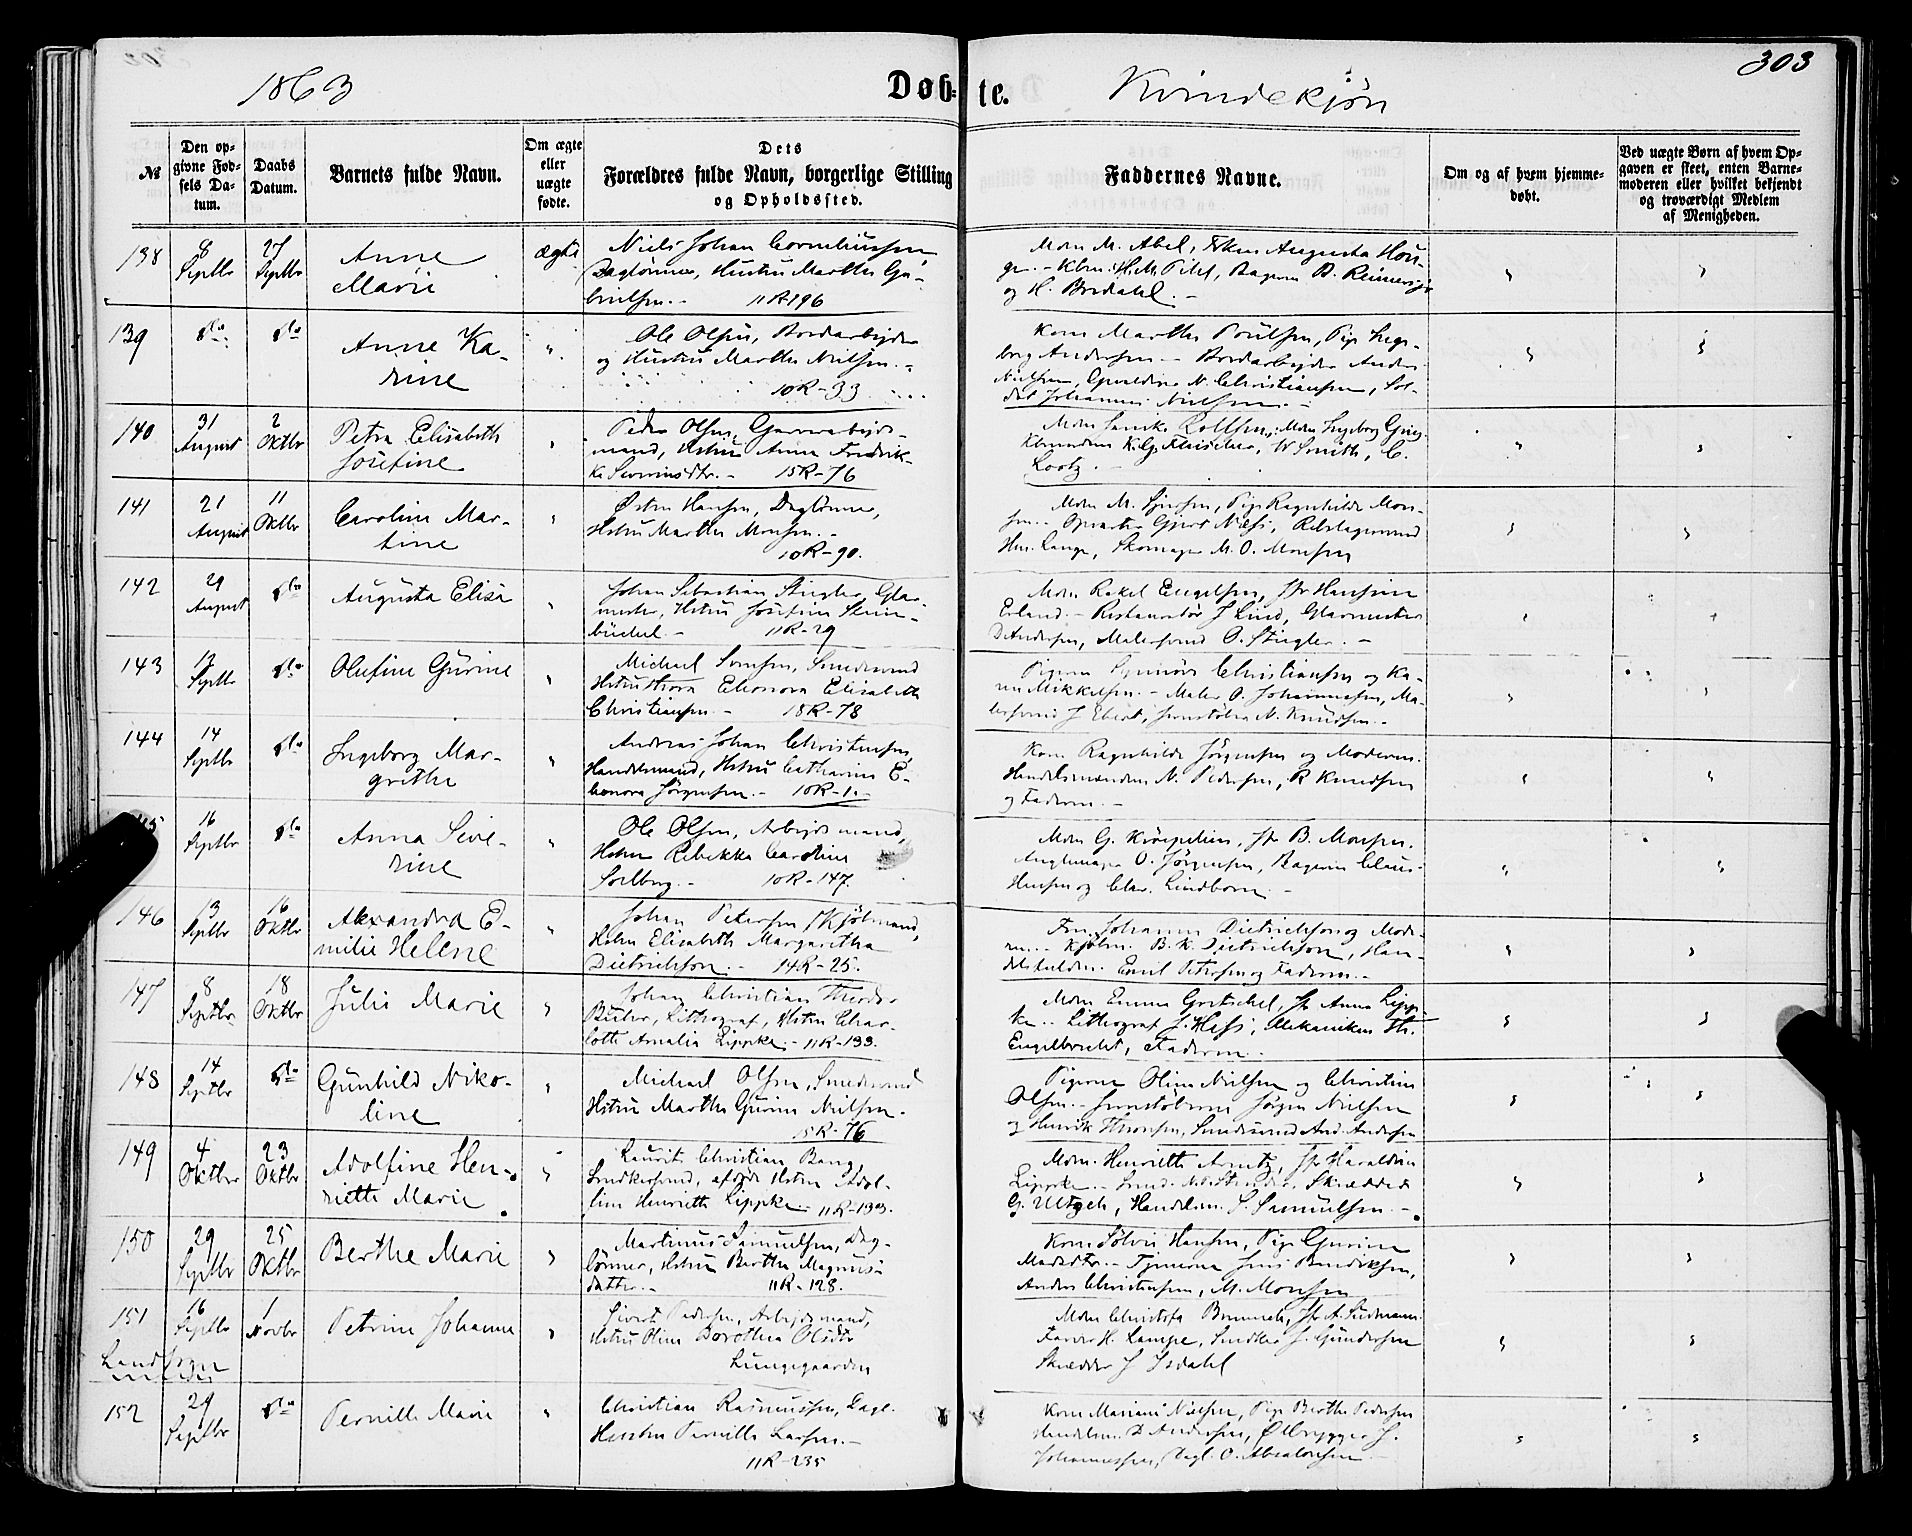 1863
Døb-
te.
Kvindekjøn
303
№
Den op-
givne Fød-
sels Da-
tum.
Daabs
Datum.
Barnets fulde Navn.
Om ægte
eller
uægte
fødte.
Dets
Forældres fulde Navn, borgerlige Stilling
og Opholdssted.
Faddernes Navne.
Om og af hvem hjemme-
døbt.
Ved uægte Børn af hvem Op-
gaven er skeet, enten Barne-
moderen eller hvilket bekjendt
og troværdigt Medlem
af Menigheden.
138
8
Septbr
27
Septbr
Anne
Marie
ægte
Niels Johan Corneliussen
Daglønner, Hustru Marthe Ga-
brielsen.- 11R-196
Mdm M. Abel, Augusta
og H. Bredahl.-
139
do
do
Anne Ka-
rine
"
Ole Olsen, Bordarbeyder
og Hustru Marthe Nielsen.-
10R-33
Kone Marthe Poulsen, Pige Inge-
borg Andersen.- Bordarbejder Anders
Nielsen, N. Christiansen, Sol-
dat Johannes Nielsen.-
140
31
August
2
Oktbr
Petra Elisabeth
Josefine
"
Peder Olsen, Garverarbejds-
mand, Hstru Anna Fredrik-
ke Severinsdtr.- 15R-76
Mdm Rolfsen, Mdm Ingeborg
Fleischer, W Smith, C.
Lootz.-
141
21
August
11
Oktbr
Caroline Mar-
tine
"
Østen Hansen, Daglønner,
Hstru Marthe Monsen.-
10R-90.
Mdm M. Pige Ragnhilde Mon-
sen.- Gjert
Lange, Skomager M. O. Monsen
142
29
August
do
Augusta Elise
"
Johan Sebastian Stiegler, Glar-
mester, Hstru Josefine Stein-
büchel.- 11R-29
Mdm Rakel Engelsen, Jfr Hansine
Erland.- Restauratør J Lind, Glarmester
D Andersen, Malersvend O. Stiegler.-
143
13
Septbr
do
Olufine Gurine
"
Michael Smedsvend
Hstru Thora Elenora Elisabeth
Christiansen.- 18R-78
Pigerne Christiansen og Ka-
ren Mikkelsen.- Maler O. Johannesen, Ma-
lersvend J Ebert, Jernstøber N. Knudsen.-
144
14
Septbr
do
Ingeborg Mar-
grethe
"
Andreas Johan Christensen,
Handelsmand, Hstru Catharine E-
leonora Jørgensen.- 10R-1.-
Kone Ragnhilde Jørgensen og Moderen.
Handelsmændene N. Pedersen, R Knudsen
og Faderen.-
145
16
Septbr
do
Anna Seve-
rine
"
Ole Olsen, Arbejdsmand,
Hstru Rebekka Caroline
Solberg.- 10R-147.
Mdm G. Jfr B. Monsen.
O. Jørgensen, Bagerne Claus
Hansen og Chr. Lindbom.-
146
13
Septbr
16
Oktbr
Alexandra E-
milie Helene
"
Johan Petersen Kjøbmand,
Hstru Elisabeth Margaretha
Dietrichson.- 14R-25.
Fru Johanne Dietrichson og Mode-
ren.- Kjøbm. B. K. Dietrichson, Han-
Emil Petersen og Faderen.-
147
8
Septbr
18
Oktbr
Julie Marie
"
Johan Christian Theodor
Lithograf, Hstru Char-
lotte Amalia Lippke.- 11R-133.
Mdm Emma Jfr Anna Lipp-
ke.- Lithograf J. Mekanikus Th.
Engelbrecht, Faderen.-
148
14
Septbr
do
Gunhild Niko-
line
"
Michael Olsen, Smedsvend
Hstru Marthe Gurine Nielsen.
15R-76
Pigerne Oline Nielsen og Christine
Olsen.- Jernstøberne Jørgen Nielsen
og Henrik Thomsen, Smedsvend And. Andersen
149
4
Oktbr
23
Oktbr
Adolfine Hen-
riette Marie
"
Laurits Christian Bang,
Snedkersvend, afdøde Hstru Adol-
fine Henriette Lippke.- 11R-133.
Mdm. Henriette Arentz, Jfr Haraldine
Lippke.- Skrædder
G. Handelsm. S. Samuelsen.-
150
29
Septbr
25
Oktbr
Berthe Marie
"
Martinus Samuelsen, Dag-
lønner, Hstru Berthe Magnus-
datter.- 11R-128.
Kone Sølvie Hansen, Pige Gurine
Madsdtr.- Tjenerne Jens Bendiksen,
Anders Christensen, M. Monsen
151
16
Septbr
1
Novbr
Landsogn
Petrine Johanne
"
Sivert Pedersen, Arbejdsmand,
Hstru Oline Dorothea Olsdtr
Lungegaarden
Mdm Christofa Jfr A.
Farver H. Lampe, J. Gundersen
Skrædder J Isdahl
152
29
Septbr
do
Pernille Marie
"
Christian Rasmussen, Dagl.
Hustru Pernille Larsen.-
11R-235
Kone Mariane Nielsen, Pige Berthe Pedersen
Handelsm. D Andersen, Ølbrygger J.
Johannessen, Dagl. O. Absalonsen